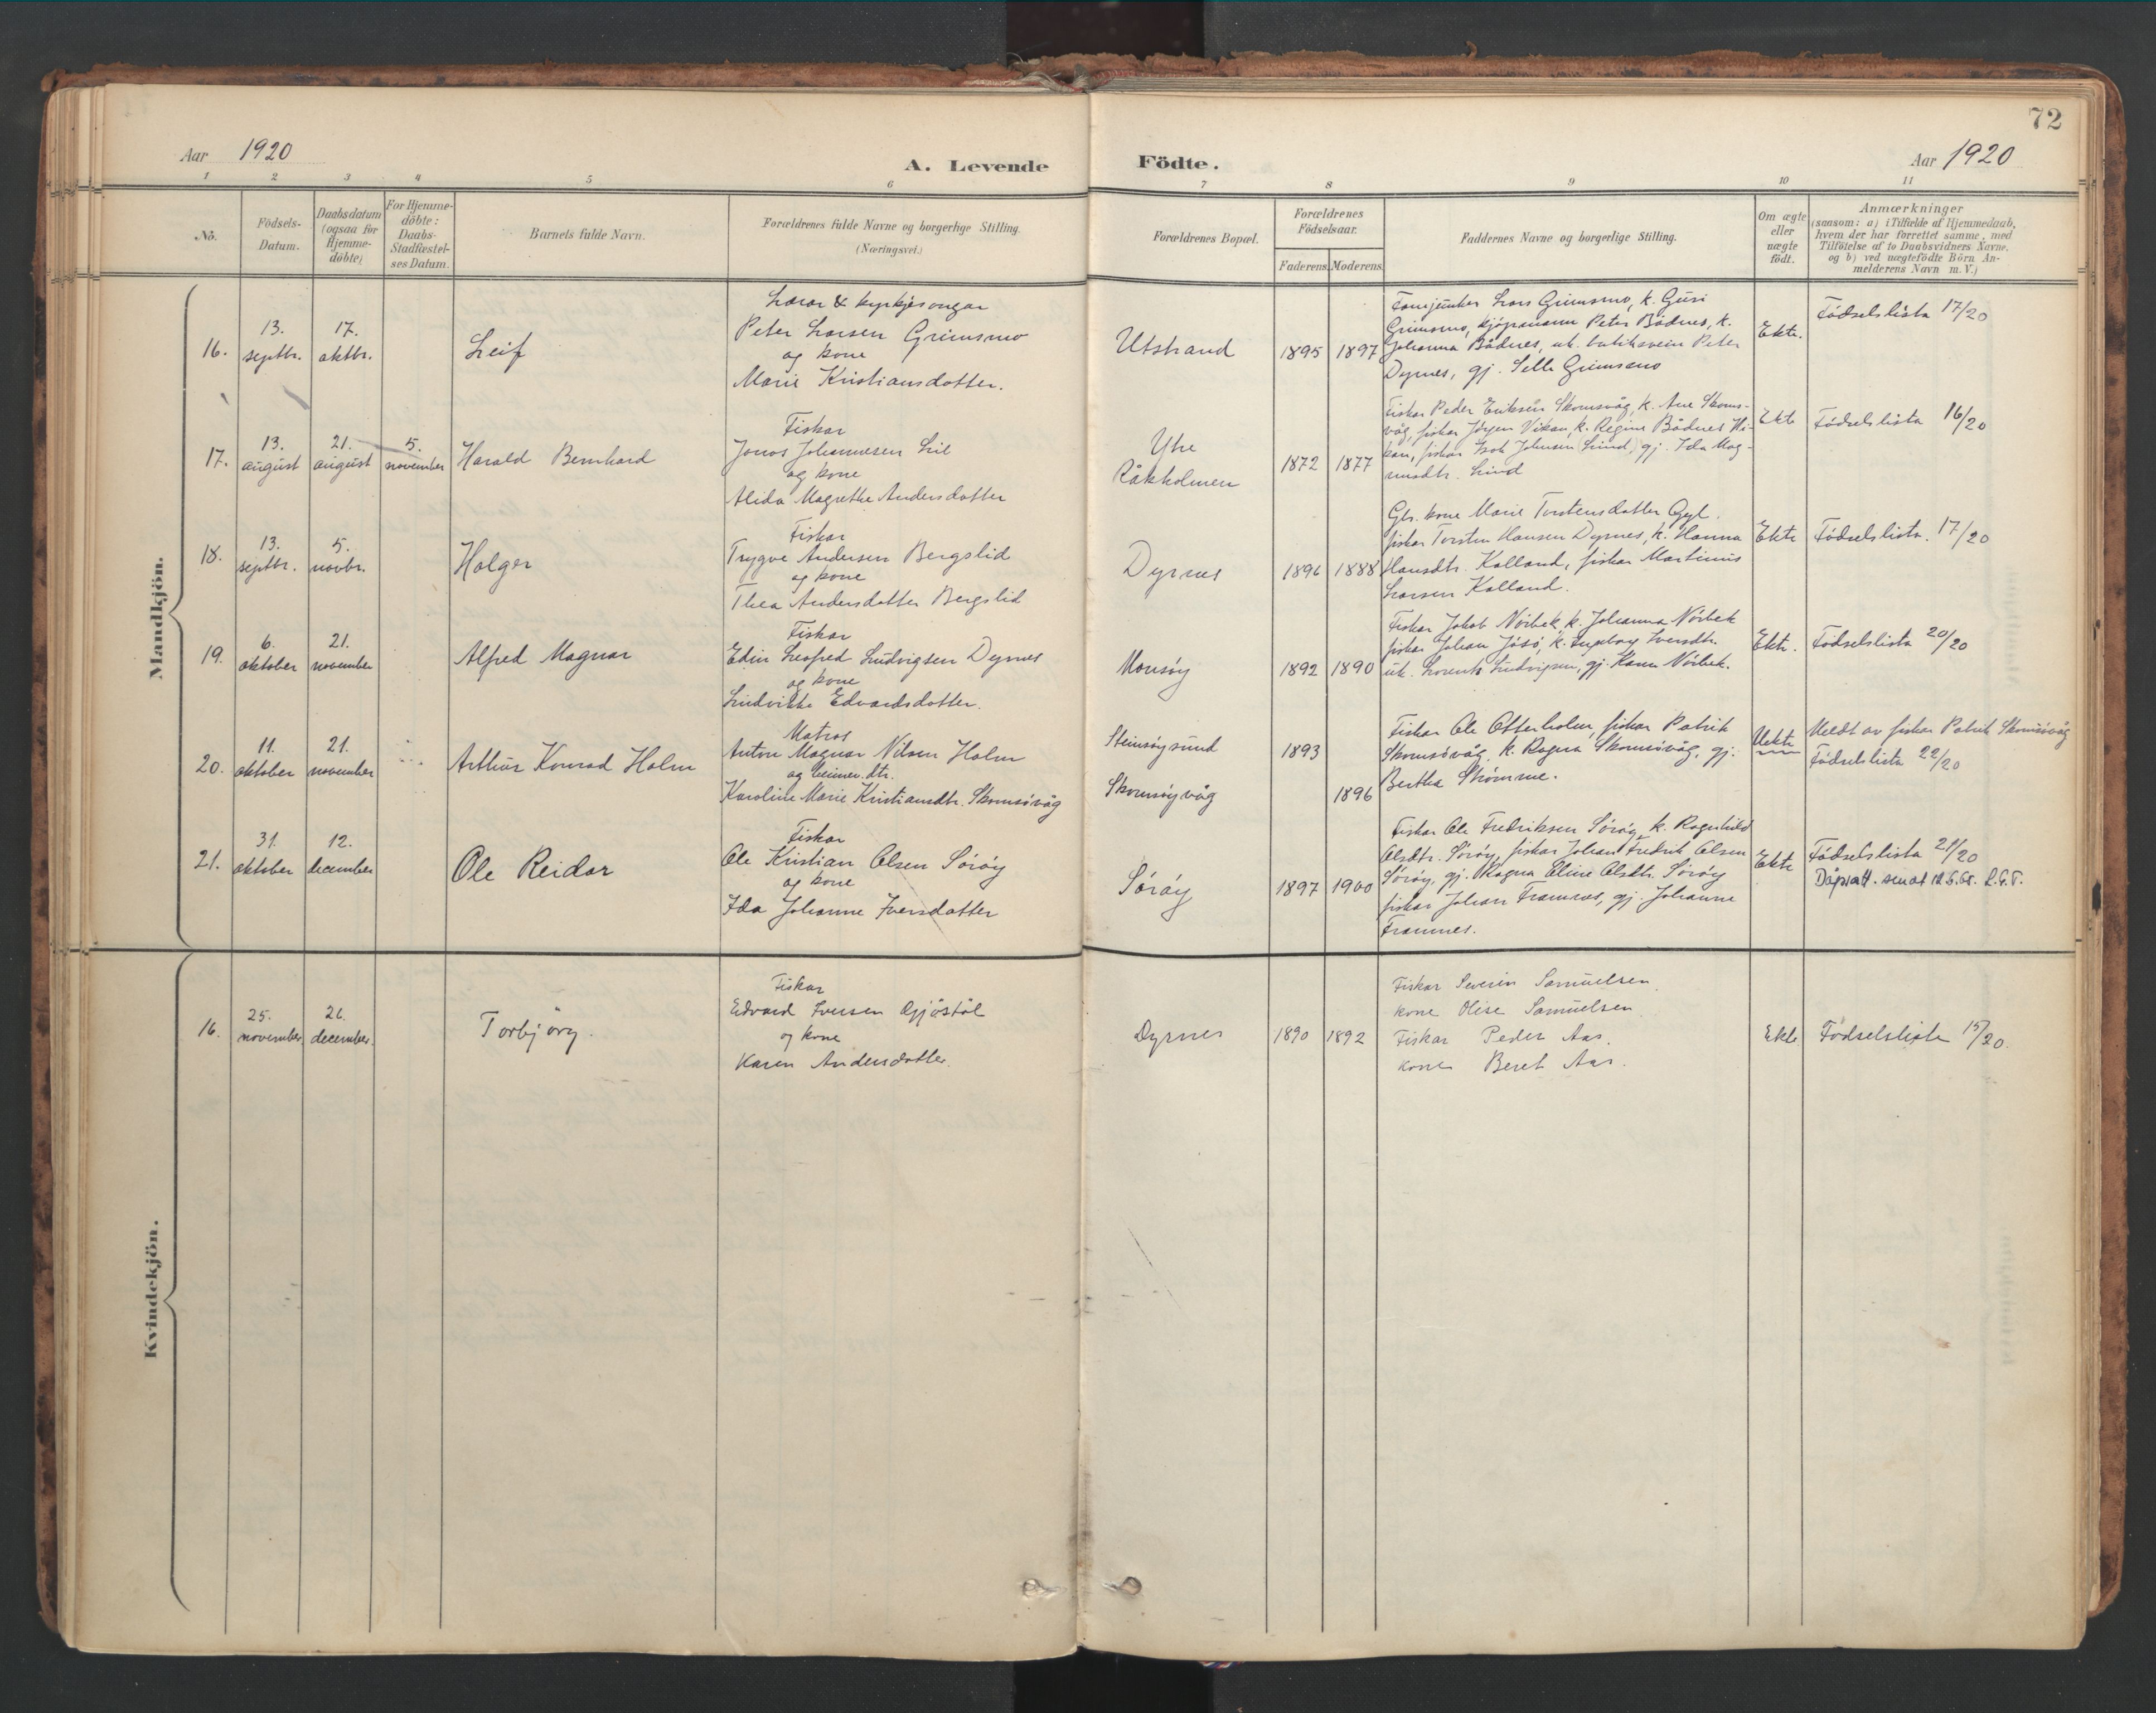 72
Aar 1920
A. Levende Födte.
Aar 1920
1 2 3 4 5 6 7 8 9 10 11
No.
Födsels-
Datum.
Daabsdatum
(ogsaa for
Hjemme-
döbte)
For Hjemme-
döbte:
Daabs-
Stadfæstel-
ses Datum.
Barnets fulde Navn.
Forældrenes fulde Navne og borgerlige Stilling.
(Næringsvei.)
Forældrenes Bopæl.
Forældrenes
Födselsaar.
Faderens. Moderens.
Faddernes Navne og borgerlige Stilling.
Om ægte
eller
uægte
födt.
Anmærkninger
(saasom: a) i Tilfælde af Hjemmedaab,
hvem der har forrettet samme, med
Tilföielse af to Daabsvidners Navne,
og b) ved uægtefödte Börn An-
melderens Navn m. V.)
Mandkjön.
16.
13.
septbr.
17.
oktbr.
Leif
Lærar & kyrkjesongar
Peter Larsen Grimsmo
og kone
Marie Kristiansdotter.
Utstrand
1895 1897
Lars Grimsmo, k. Guri
Grimsmo, kjøpmann Peter Bådnes, k.
Johanna Bådnes, uk. Peter
Dyrnes, gj. Grimsmo
Ekte.
Födselslista 17/20
17.
13.
august
21.
august
5.
november
Harald Bernhard
Fiskar
Jonas Johannesen Lil
og kone
Alida Magrethe Andersdotter
Ytre
Råkholmen
1872 1877
Fiskar Peder Eriksen Skomsvåg, k. Ane Skoms-
våg, fiskar Jörgen Vikan, k. Regine Bådnes Vi-
kan, fiskar Johnsen Lind, gj. Ida Mag-
nusdtr. Lind
Ekte
Födselslista 16/20
18.
13.
septbr.
5.
novbr.
Holger
Fiskar
Trygve Andersen Bergslid
og kone
Thea Andersdotter Bergslid
Dyrnes
1896 1888
Gbr. kone Marie Torstensdotter Gyl.
fiskar Torsten Hansen Dyrnes, k. Hanna
Hansdtr. Kalland, fiskar Martinus
Larsen Kalland.
Ekte
Födselslista. 17/20
19.
6.
oktober
21.
november
Alfred Magnar
Fiskar
Edin Leofred Ludvigsen Dyrnes
og kone
Ludvikke Edvardsdotter.
Monsöy
1892 1890
Fiskar Jakob Nörbek, k. Johanna Nörbek
fiskar Johan Jösö, k. Ingeborg Iversdtr.
uk. Lorents Ludvigsen, gj. Nörbek.
Ekte.
Födselslista 20/20
20.
11.
oktober
21.
november
Arthur Konrad Holm
Matros
Anton Magnar Nilsen Holm
og heimev. dtr.
Karoline Marie Kristiansdtr. Skomsövåg
Steinsöysund
Skomsöyvåg
1893
1896
Fiskar Ole Otterholm, fiskar Patrik
Skomsövåg, k. Ragna Skomsövåg, gj.
Bertha Strömme.
Uekte
Meldt av fiskar Patrik Skomsövåg
Födselslista 22/20
21.
31.
oktober
12.
december
Ole Reidar
Fiskar
Ole Kristian Olsen Söröy
og kone
Ida Johanne Iversdatter
Söröy
1897 1900
Fiskar Ole Fredriksen Söröy, k. Ragnhild
Olsdtr. Söröy, fiskar Johan Fredrik Olsen
Söröy, gj. Ragna Eline Olsdtr. Söröy
fiskar Johan Framnes, gj. Johanne
Framnes.
Ekte
Födselslista 21/20
Dåpsatt. 12.6.68.
Kvindekjön.
16.
25.
november
26.
december.
Torbjörg.
Fiskar
Edvard Iversen Gjöstöl
og kone
Karen Andersdotter.
Dyrnes
1890 1892
Fiskar Severin Samuelsen.
kone Olise Samuelsen
Fiskar Peder Aas.
kone Beret Aas.
Ekte
Födselsliste 15/20.